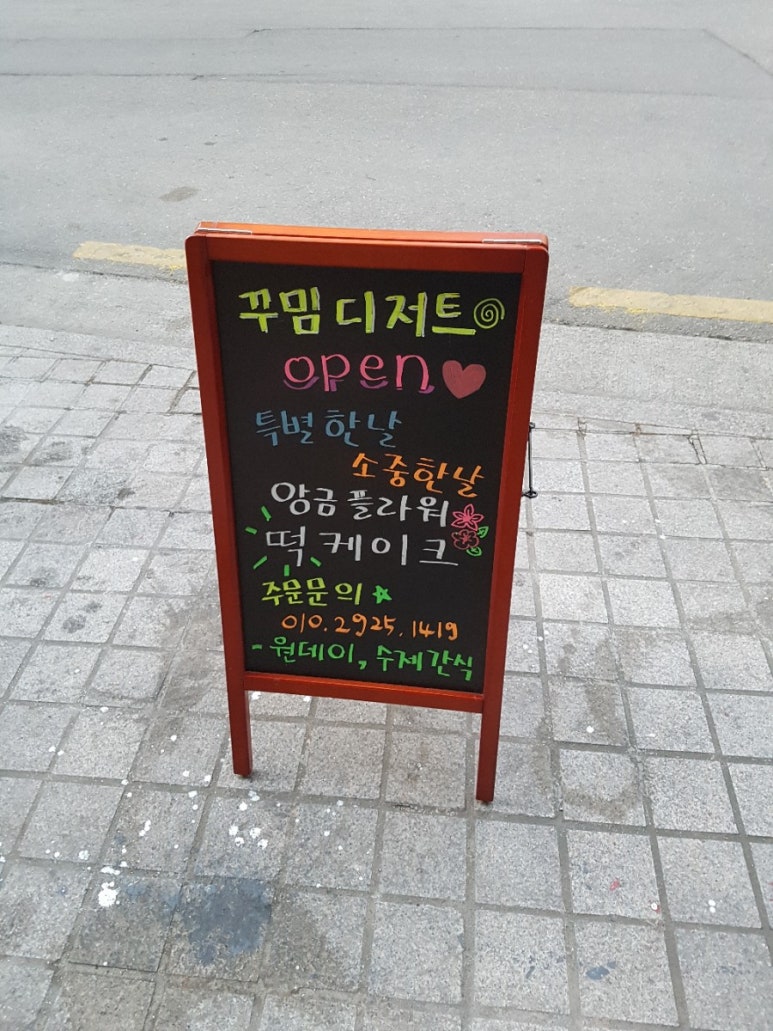 꾸밈 디저트
open
특별한날
소중한날
앙금플라워
떡케이크
주문문의
010.2925.1419
- 원데이, 수제간식